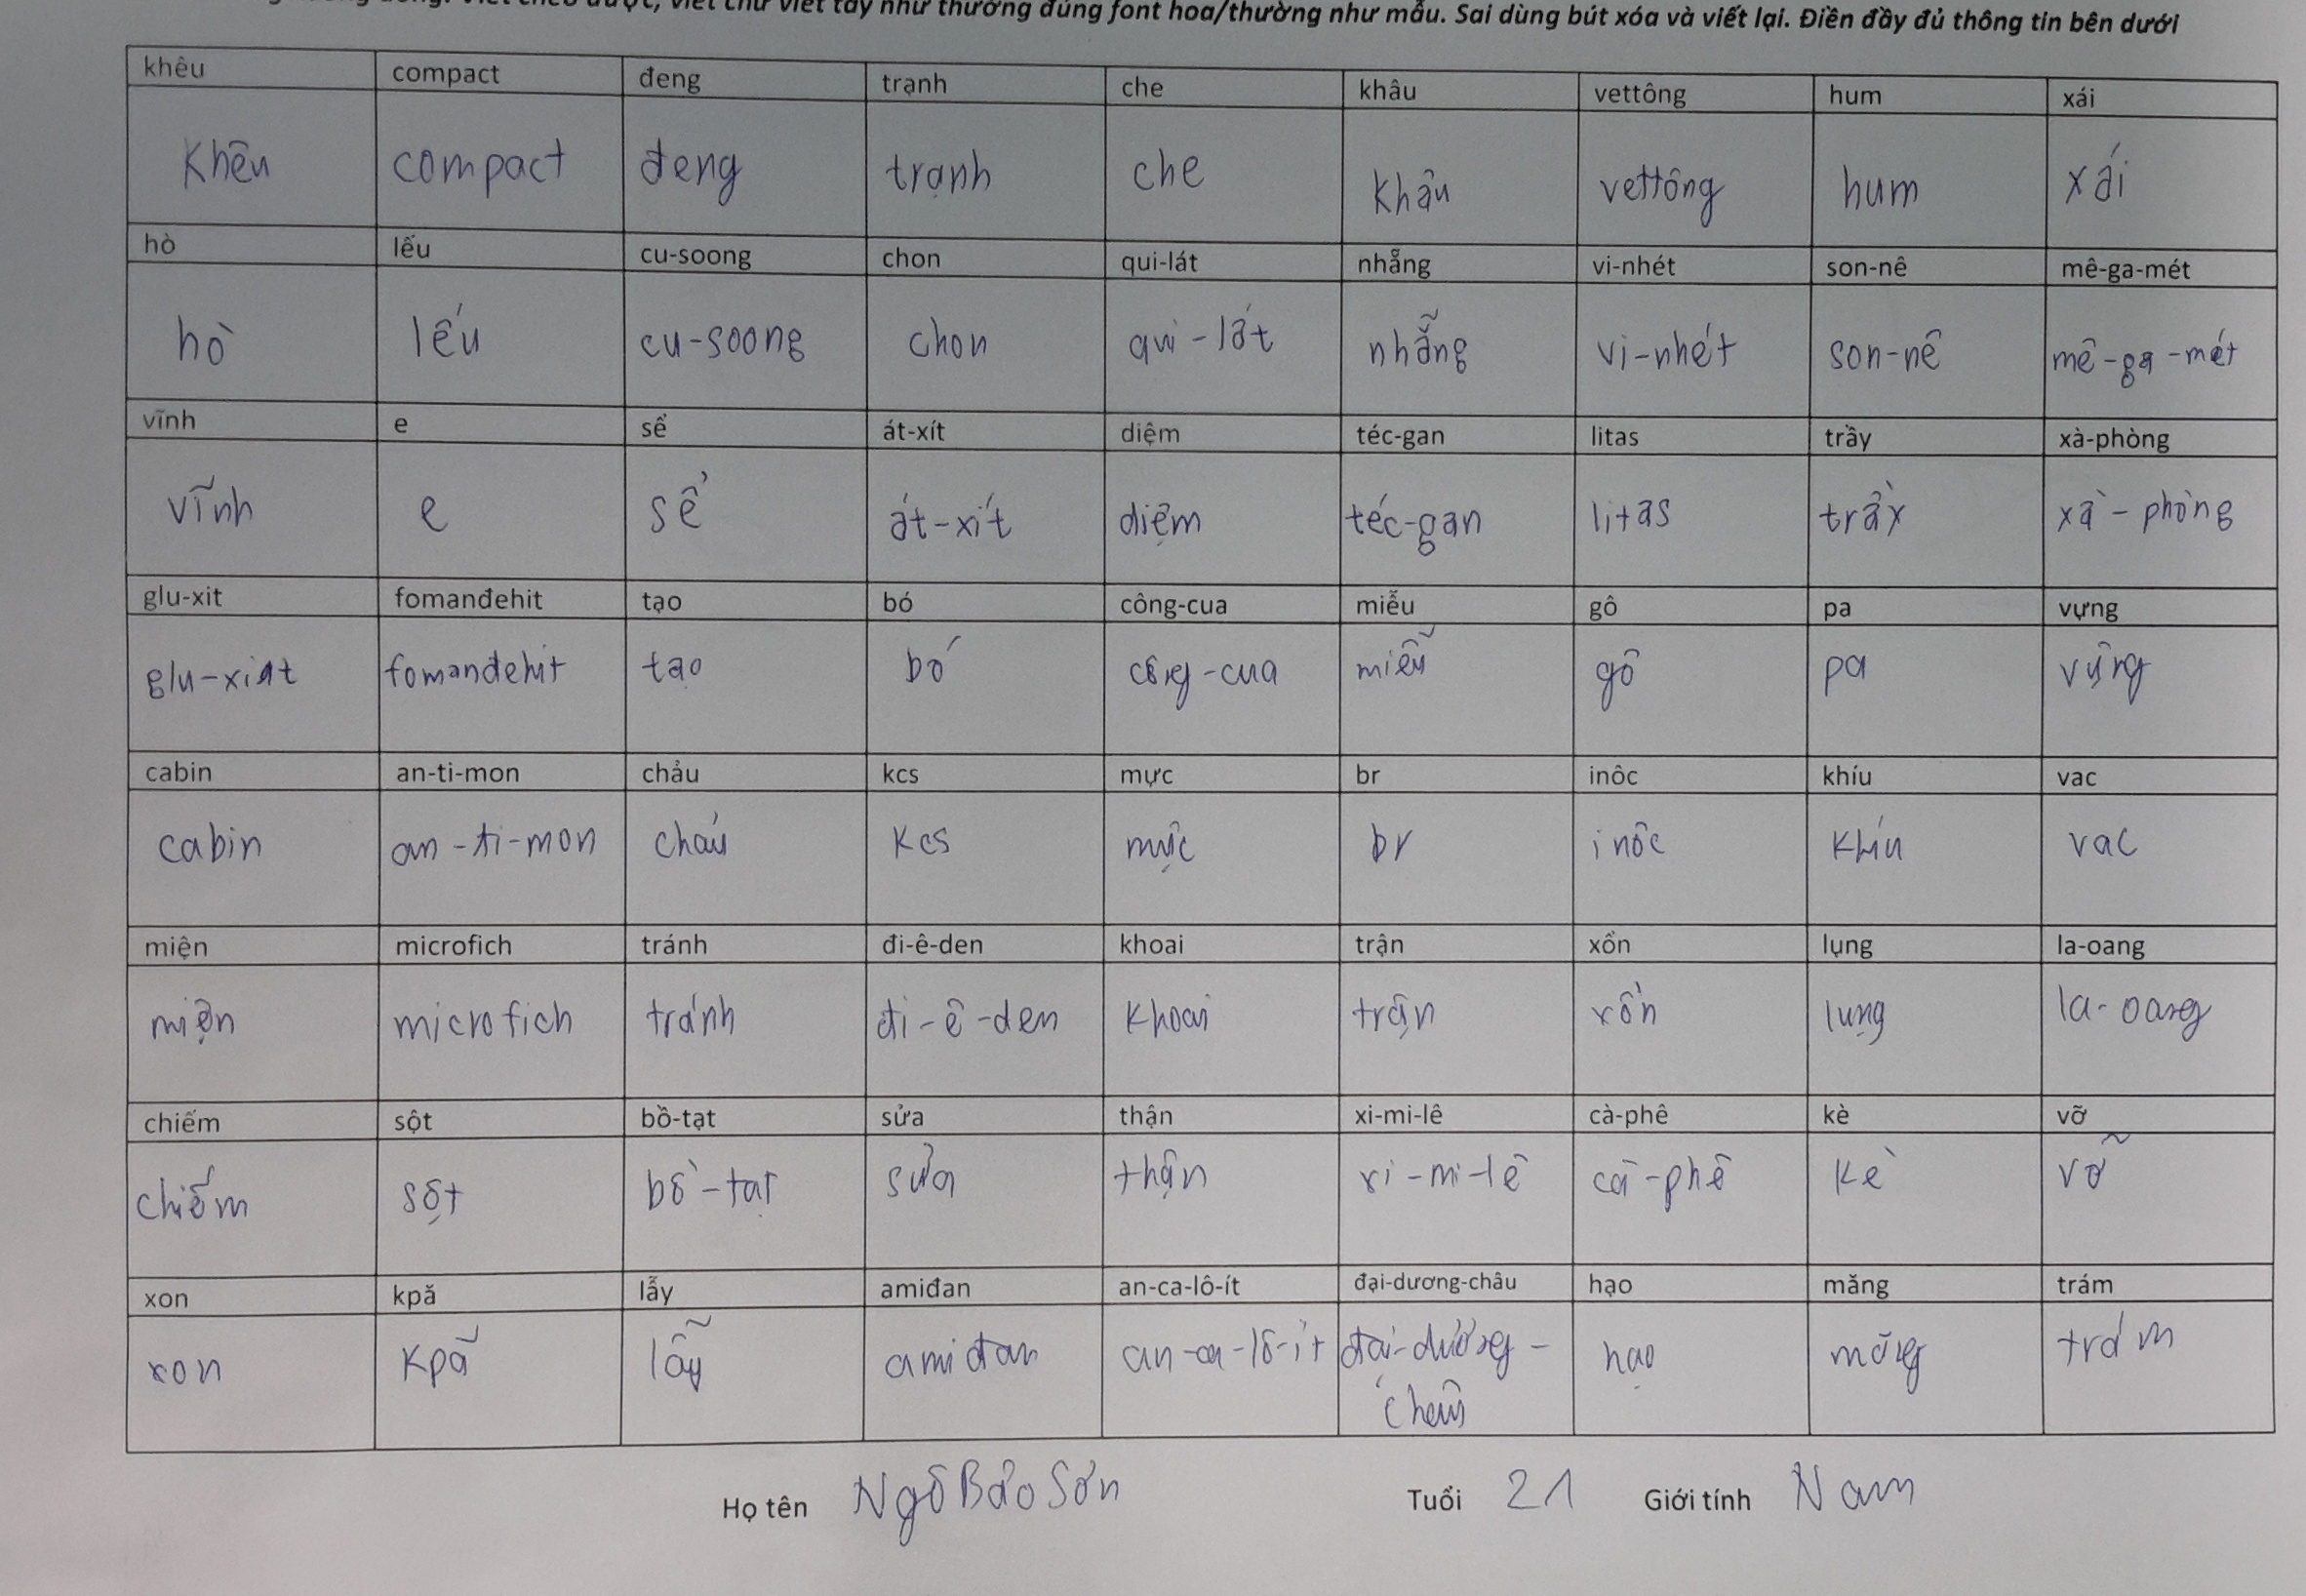 viết chữ viết tay như thường đúng font hoa/thường như mẫu. Sai dùng bút xóa và viết lại. Điền đầy đủ thông tin bên dưới
khêu compact đeng trạnh che khâu vettông hum xái
khêu compact đeng trạnh che khâu vettông hum xái
hò lếu cu-soong chon qui-lát nhẵng vi-nhét son-nê mê-ga-mét
hò lếu cu-soong chon qui-lát nhẵng vi-nhét son-nê mê-ga-mét
vĩnh e sể át-xít diệm téc-gan litas trầy xà-phòng
vĩnh e sể át-xít diệm téc-gan litas trầy xà-phòng
glu-xit fomanđehit tạo bó công-cua miễu gô pa vựng
glu-xit fomanđehit tạo bó công-cua miễu gô pa vựng
cabin an-ti-mon chảu kcs mực br inôc khíu vac
cabin an-ti-mon chảu kcs mực br inôc khíu vac
miện microfich tránh đi-ê-den khoai trận xổn lụng la-oang
miện microfich tránh đi-ê-den khoai trận xổn lụng la-oang
chiếm sột bồ-tạt sửa thận xi-mi-lê cà-phê kè vỡ
chiếm sột bồ-tạt sửa thận xi-mi-lê cà-phê kè vỡ
xon kpă lẫy amiđan an-ca-lô-ít đại-dương-châu hạo măng trám
xon kpă lẫy amiđan an-ca-lô-ít đại-dương- hạo măng trám
châu
Họ tên Ngô Bảo Sơn Tuổi 21 Giới tính Nam